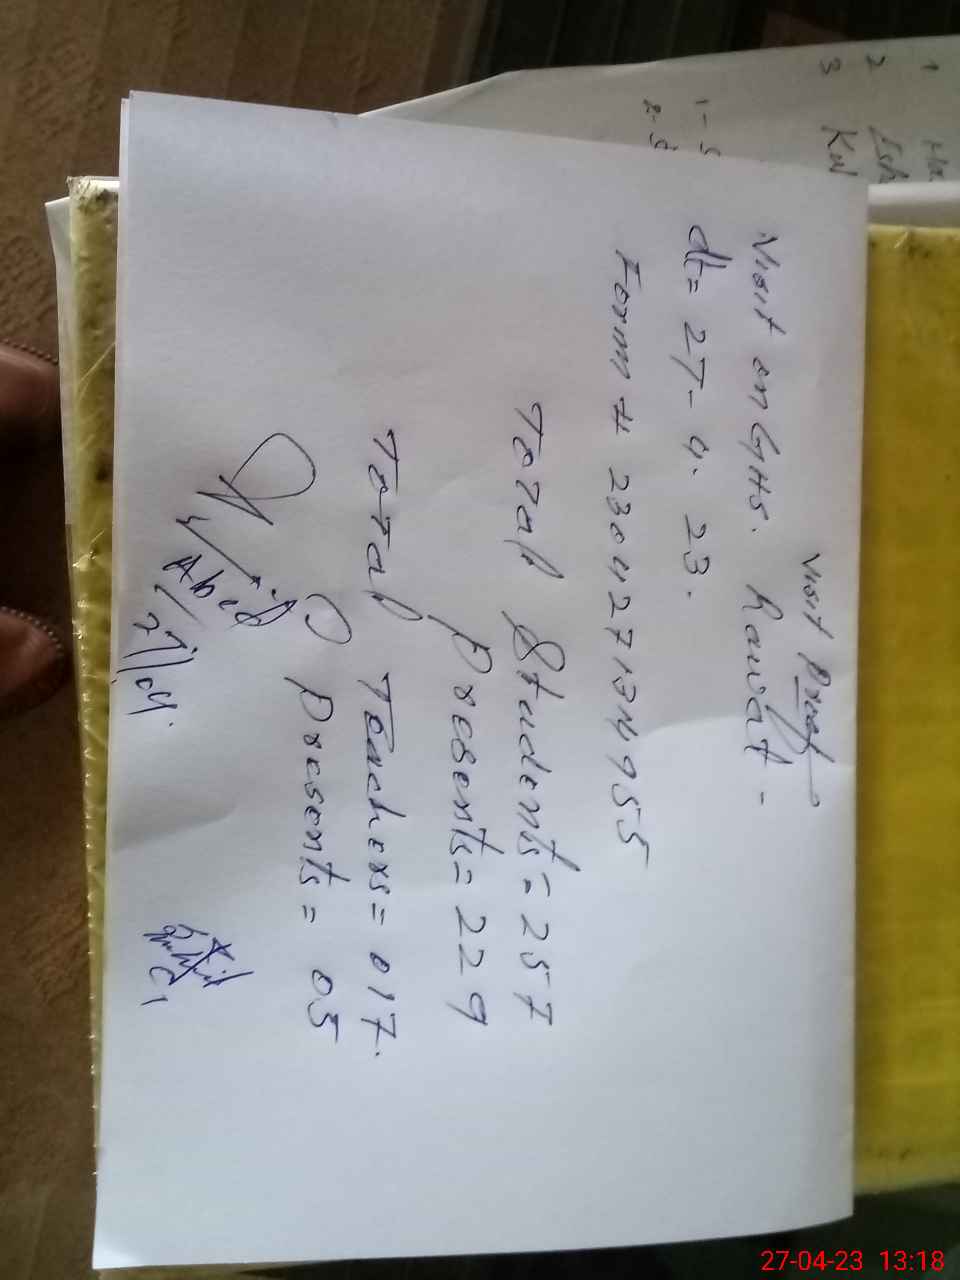 Visit Proof
Visit on GHS. Rawat -
dt = 27-4.23.
Form # 230427134955
Total Students = 257
Presents = 229
Total Teachers = 017.
Presents = 05
Abid
27/04.
1
2
3
1-
2-
27-04-23 13:18